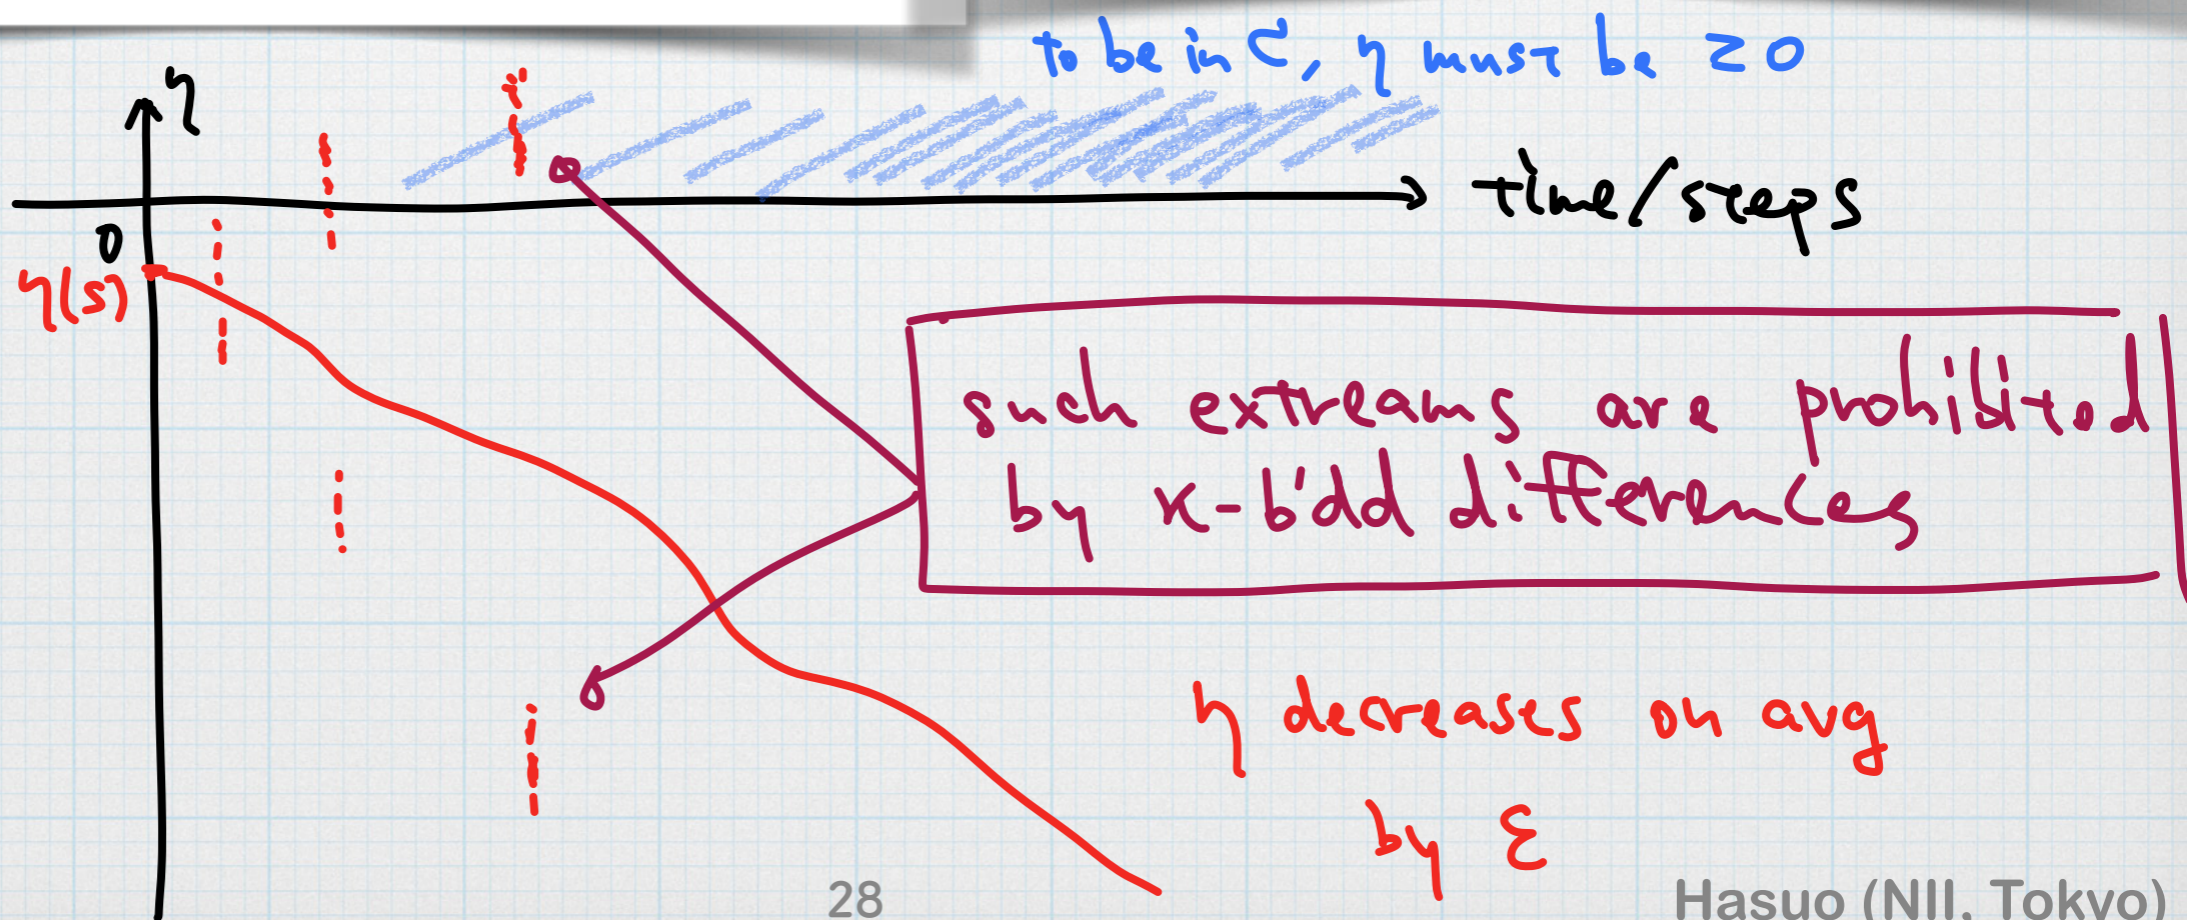 to be in C, η must be ≥ 0
η
time/steps
0
η(s)
such extreams are prohibited
by κ-b'dd differences
η decreases on avg
by ε
28
Hasuo (NII, Tokyo)